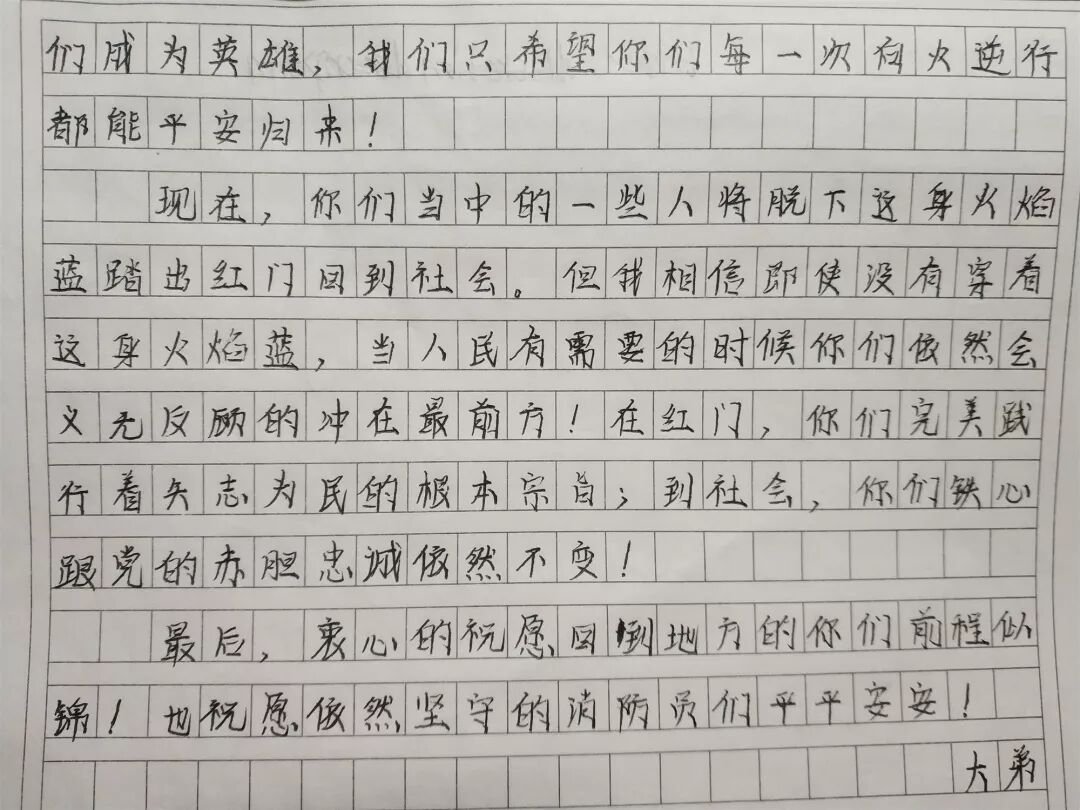 们成为英雄，我们只希望你们每一次向火逆行
都能平安归来！
现在，你们当中的一些人将脱下这身火焰
蓝踏出红门回到社会。但我相信即使没有穿着
这身火焰蓝，当人民有需要的时候你们依然会
义无反顾的冲在最前方！在红门，你们完美践
行着矢志为民的根本宗旨；到社会，你们铁心
跟党的赤胆忠诚依然不变！
最后，衷心的祝愿回到地方的你们前程似
锦！也祝愿依然坚守的消防员们平平安安！
大弟